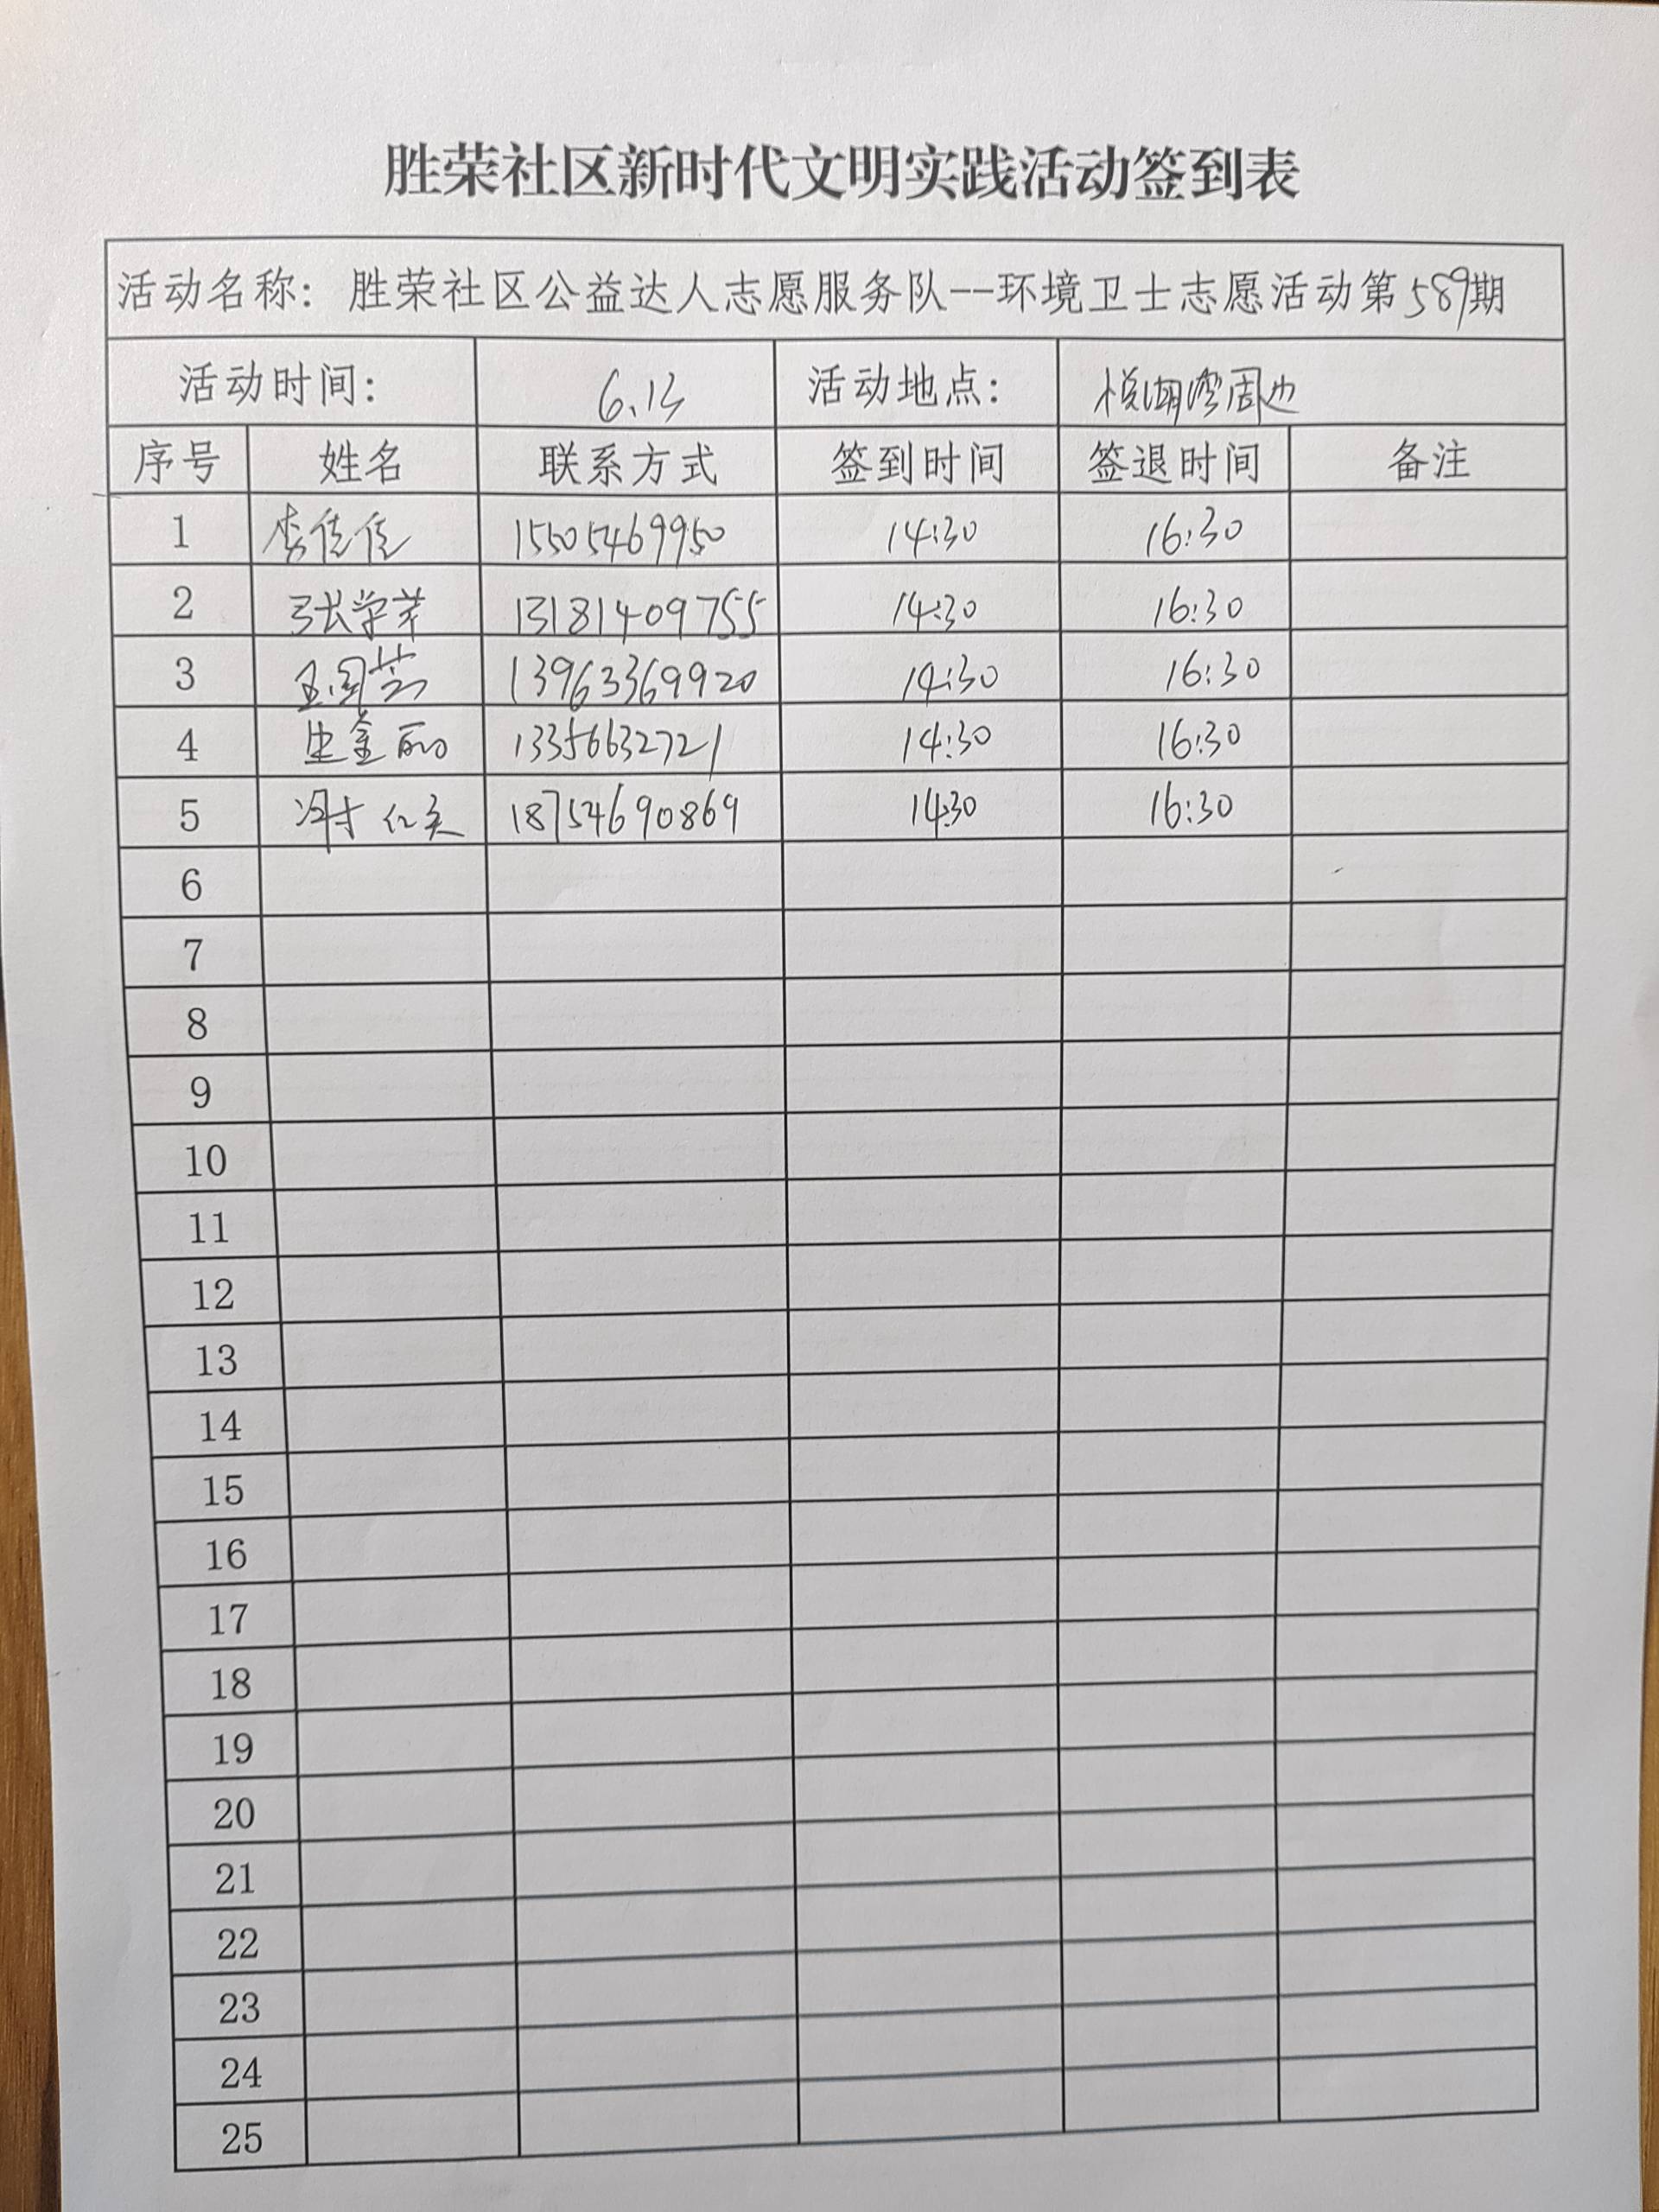 胜荣社区新时代文明实践活动签到表
活动名称：胜荣社区公益达人志愿服务队--环境卫士志愿活动第589期
活动时间： 6.13 活动地点： 悦湖湾周边
序号 姓名 联系方式 签到时间 签退时间 备注
1 李佳佳 15505469950 14:30 16:30
2 张学芳 13181409755 14:30 16:30
3 13963369920 14:30 16:30
4 金丽 13356632721 14:30 16:30
5 18754690869 14:30 16:30
6
7
8
9
10
11
12
13
14
15
16
17
18
19
20
21
22
23
24
25